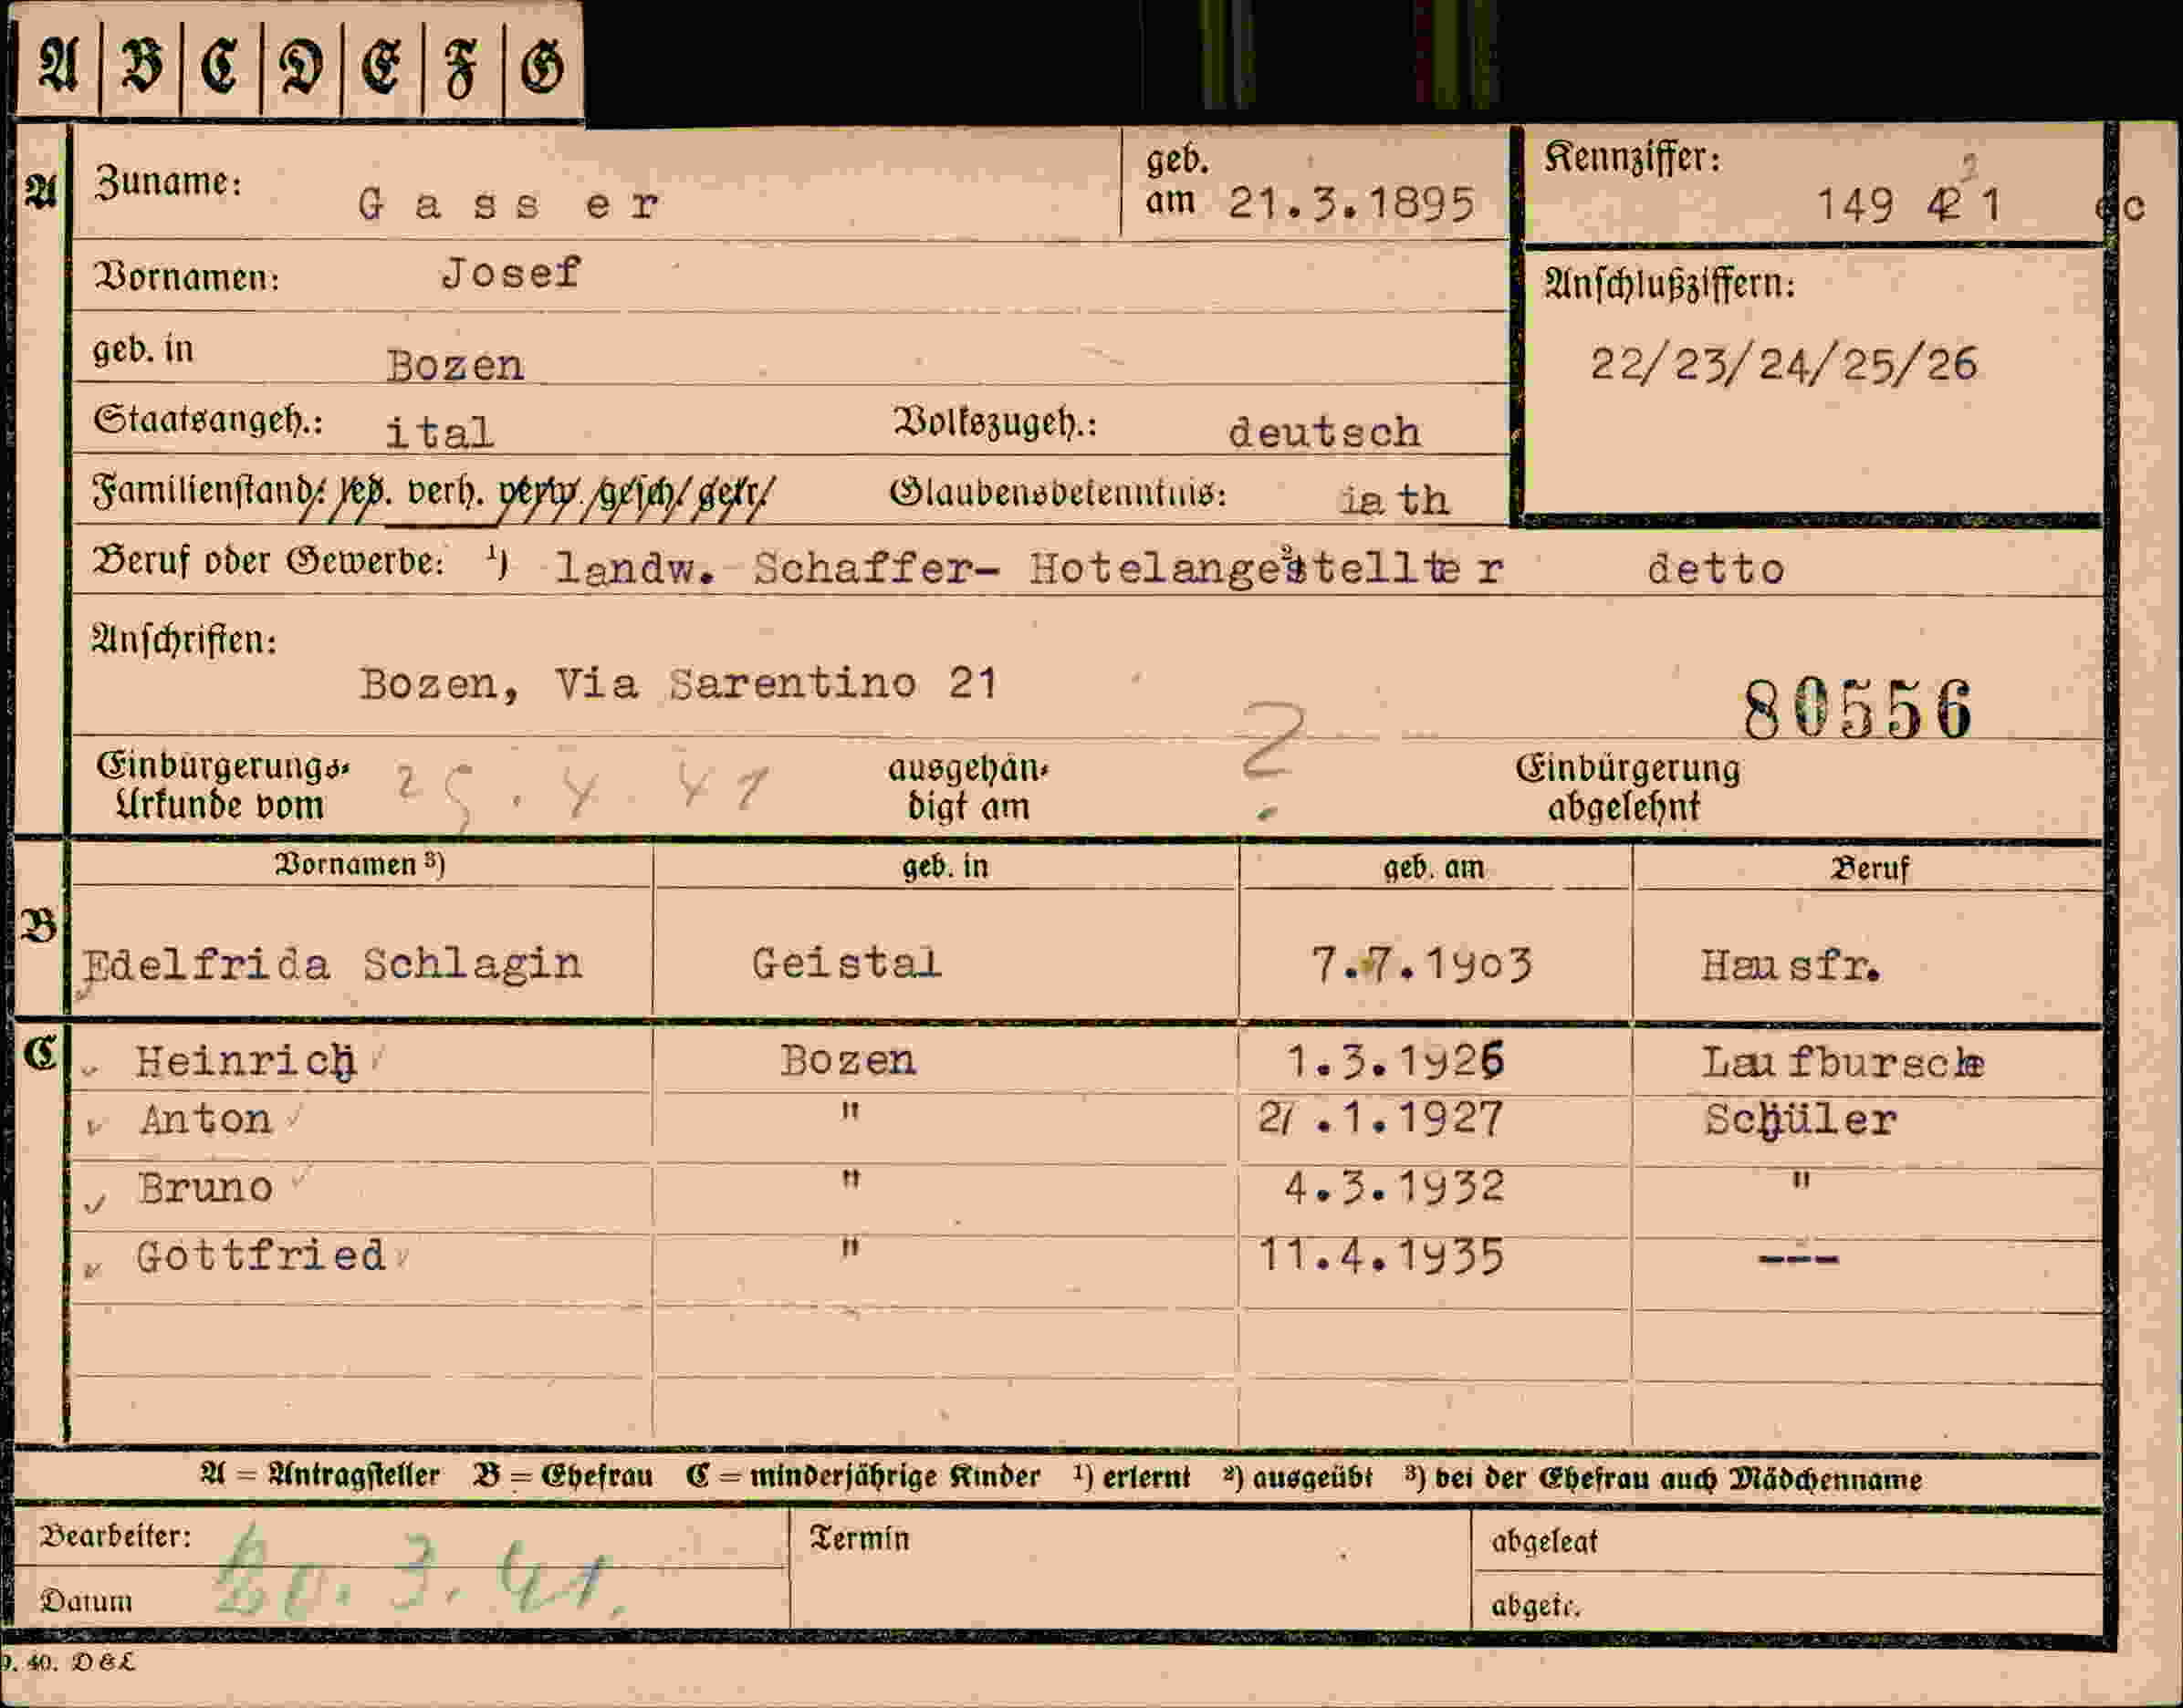 A | B | C | D | E | F | G
A Zuname: Gasser geb. am 21.3.1895 Kennziffer: 149 421 c
Vornamen: Josef Anschlußziffern:
geb. in Bozen 22/23/24/25/26
Staatsangeh.: ital Volkszugeh.: deutsch
Familienstand: led. verh. verw. gesch. getr. Glaubensbekenntnis: kath
Beruf oder Gewerbe: ¹) landw. Schaffer- Hotelangestellter ²) detto
Anschriften:
Bozen, Via Sarentino 21
80556
Einbürgerungs-Urkunde vom 25.4.41 ausgehändigt am ? Einbürgerung abgelehnt
Vornamen ³) geb. in geb. am Beruf
B Edelfrida Schlagin Geistal 7.7.1903 Hausfr.
C Heinrich Bozen 1.3.1926 Laufbursche
Anton " 21.1.1927 Schüler
Bruno " 4.3.1932 "
Gottfried " 11.4.1935 ---
A = Antragsteller B = Ehefrau C = minderjährige Kinder ¹) erlernt ²) ausgeübt ³) bei der Ehefrau auch Mädchenname
Bearbeiter: Termin abgelegt
Datum 20.3.41. abgetr.
9. 40. D & L